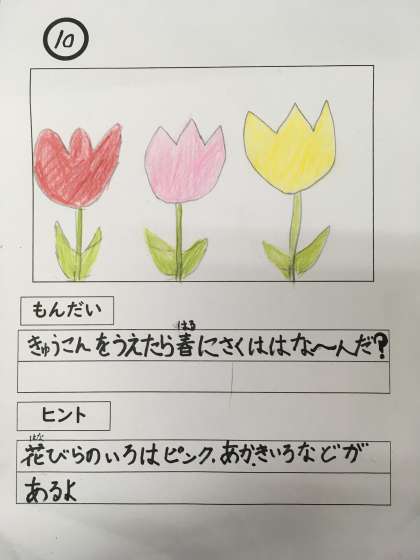 10
もんだい
きゅうこんをうえたら春にさくははな〜んだ?
はる
ヒント
花びらのいろはピンク,あか,きいろなどが
はな
あるよ